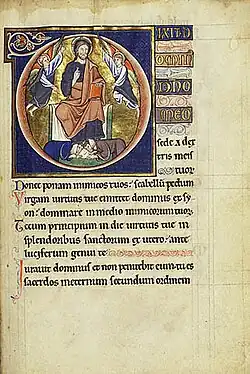 DIXIT D
OMIN
DNO
MEO
sede a dex
tris meis
Donec ponam inimicos tuos: scabellum pedum
Virgam virtutis tue emittet dominus ex sy
on: dominare in medio inimicorum tuorum
Tecum principium in die virtutis tue in
splendoribus sanctorum ex utero: ante
luciferum genui te
Iuravit dominus et non penitebit eum: tu es
sacerdos in eternum secundum ordinem